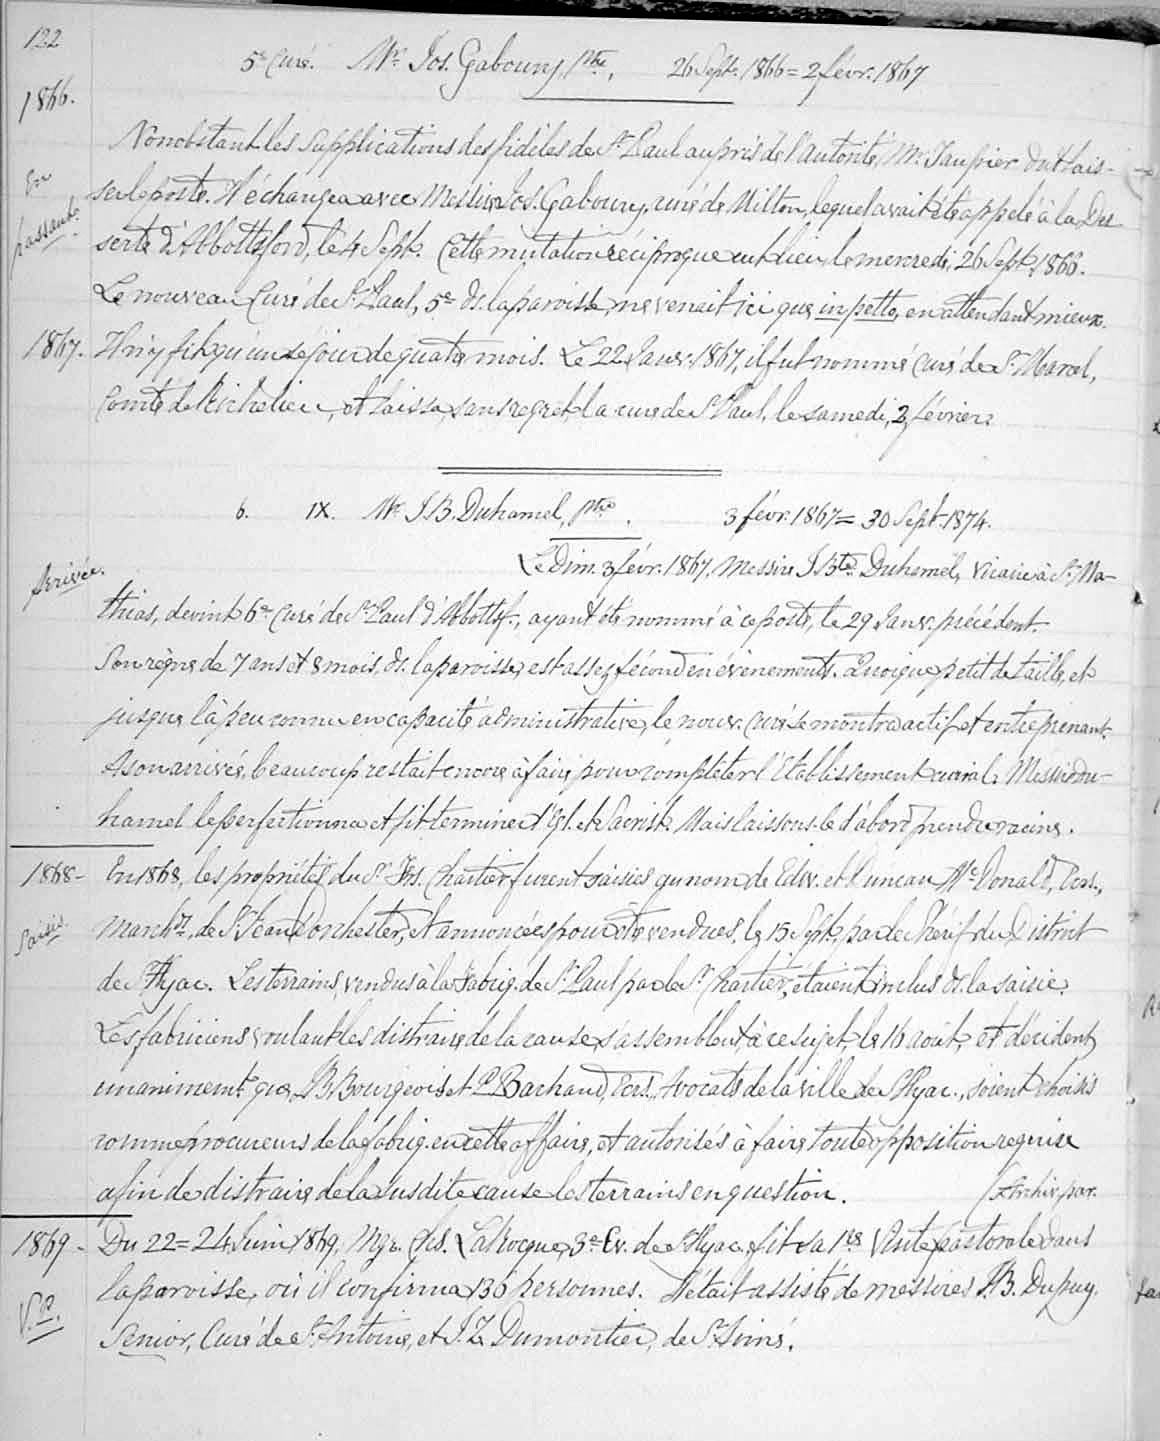 122
5e Curé. Mr. Jos. Gaboury, Ptre, 26 Sept. 1866 = 2 févr. 1867
1866.
Nonobstant les supplications des fidèles de St Paul auprès de l'autorité, Mr. dut lais-
En passant.
ser le poste. Il échangea avec Messire Jos. Gaboury, curé de Milton, lequel avait été appelé à la Des
serte d'Abbottsford, le 4 Sept. Cette mutation réciproque eut lieu, le mercredi, 26 Sept. 1866.
Le nouveau Curé de St Paul, 5e ds. la paroisse, ne venait ici que in petto, en attendant mieux.
1867. Il n'y fit qu'un séjour de quatre mois. Le 22 Janv. 1867, il fut nommé Curé de St. Marcel,
Comté de Richelieu, et laissa, sans regret, la cure de St Paul, le samedi, 2 février.
6. IX. Mr. J. B. Duhamel, Ptre. 3 févr. 1867 = 30 Sept. 1874.
Arrivée.
Le Dim. 3 févr. 1867, Messire J. Bte. Duhamel, Vicaire à St. Ma-
thias, devint 6e Curé de St Paul d'Abbottsf., ayant été nommé à ce poste, le 29 Janv. précédent.
Son règne de 7 ans et 8 mois, ds. la paroisse, est assez fécond en évènements. Quoique petit de taille, et
jusque là peu connu en capacité administrative, le nouv. Curé se montra actif et entreprenant.
A son arrivée, beaucoup restait encore à faire pour compléter l'Etablissement curial. Messire Du-
hamel le perfectionna et fit terminer l'Egl. et Sacrist. Mais laissons-le d'abord prendre racine.
1868 - En 1868, les propriétés du Sr Frs. Chartier furent saisies au nom de Edw. et Duncan McDonald, Ecrs.,
Saisie.
Marchds., de St Jean Dorchester, et annoncées pour être vendues, le 15 Sept., par le Shérif du District
de St Hyac. Les terrains, vendus à la Fabriq. de St. Paul par le Sr. Chartier, étaient inclus ds. la saisie.
Les fabriciens voulant les distraire de la cause s'assemblent, à ce sujet, le 16 août, et décident
unanimemt. que, B. Bourgeois et P. Bachand, Ecrs., Avocats de la ville de St Hyac., soient choisis
comme procureurs de la fabriq. en cette affaire, et autorisés à faire toute opposition requise
afin de distraire de la susdite cause les terrains en question. (Archiv. par.
1869 - Du 22 = 24 Juin 1869, Mgr. Chs. LaRocque, 3e Ev. de St Hyac. fit sa 1re Visite pastorale dans
V.P.
la paroisse, où il confirma 130 personnes. Il était assisté de messires J. B. Dupuy,
Senior, Curé de St. Antoine, et J. Z. Dumontier, de St. Simé.